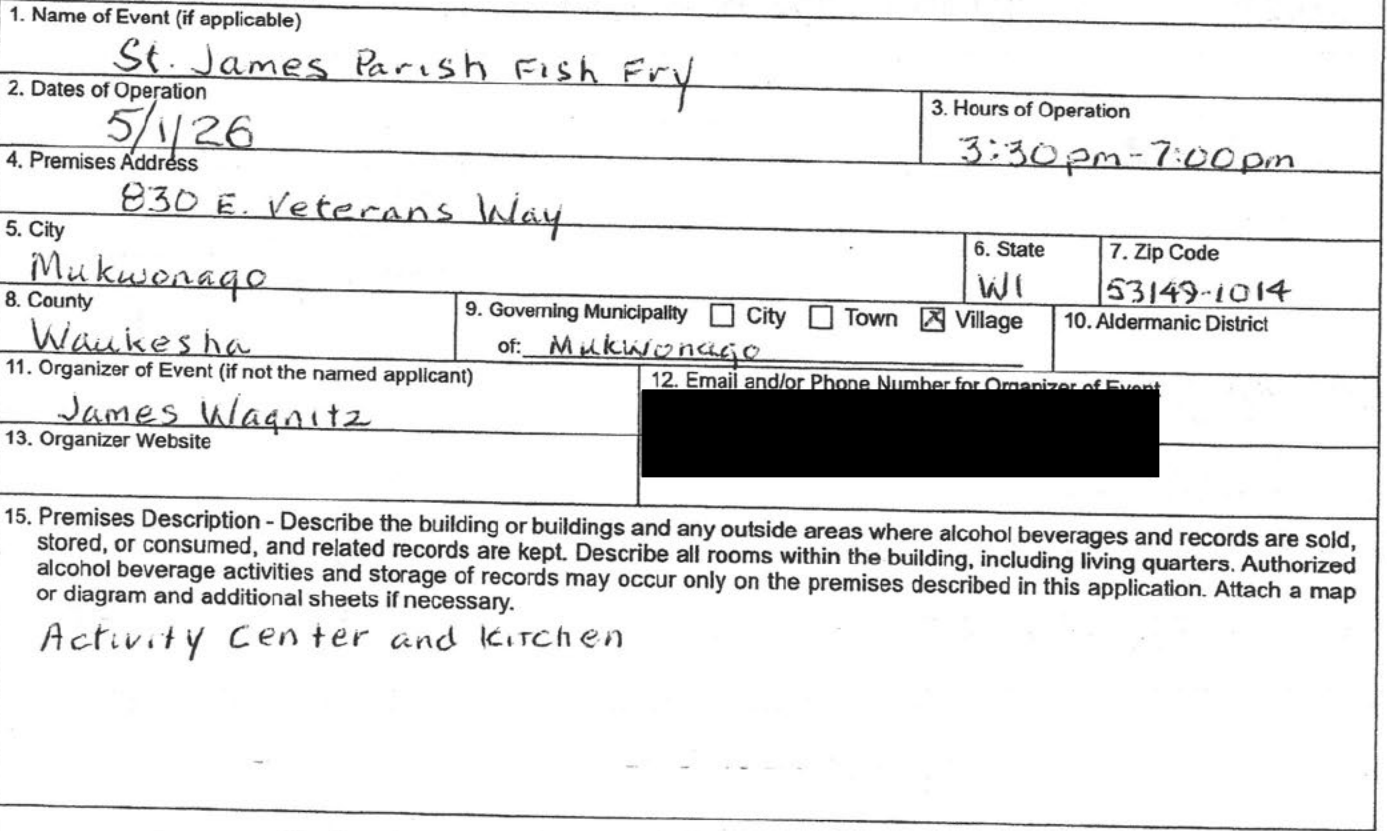 1. Name of Event (if applicable)
St. James Parish Fish Fry
2. Dates of Operation
5/1/26
3. Hours of Operation
3:30pm-7:00pm
4. Premises Address
830 E. Veterans Way
5. City
Mukwonago
6. State
WI
7. Zip Code
53149-1014
8. County
Waukesha
9. Governing Municipality City Town Village
of: Mukwonago
10. Aldermanic District
11. Organizer of Event (if not the named applicant)
James Wagnitz
12. Email and/or Phone Number for Organizer of Event
13. Organizer Website
15. Premises Description - Describe the building or buildings and any outside areas where alcohol beverages and records are sold,
stored, or consumed, and related records are kept. Describe all rooms within the building, including living quarters. Authorized
alcohol beverage activities and storage of records may occur only on the premises described in this application. Attach a map
or diagram and additional sheets if necessary.
Activity Center and Kitchen